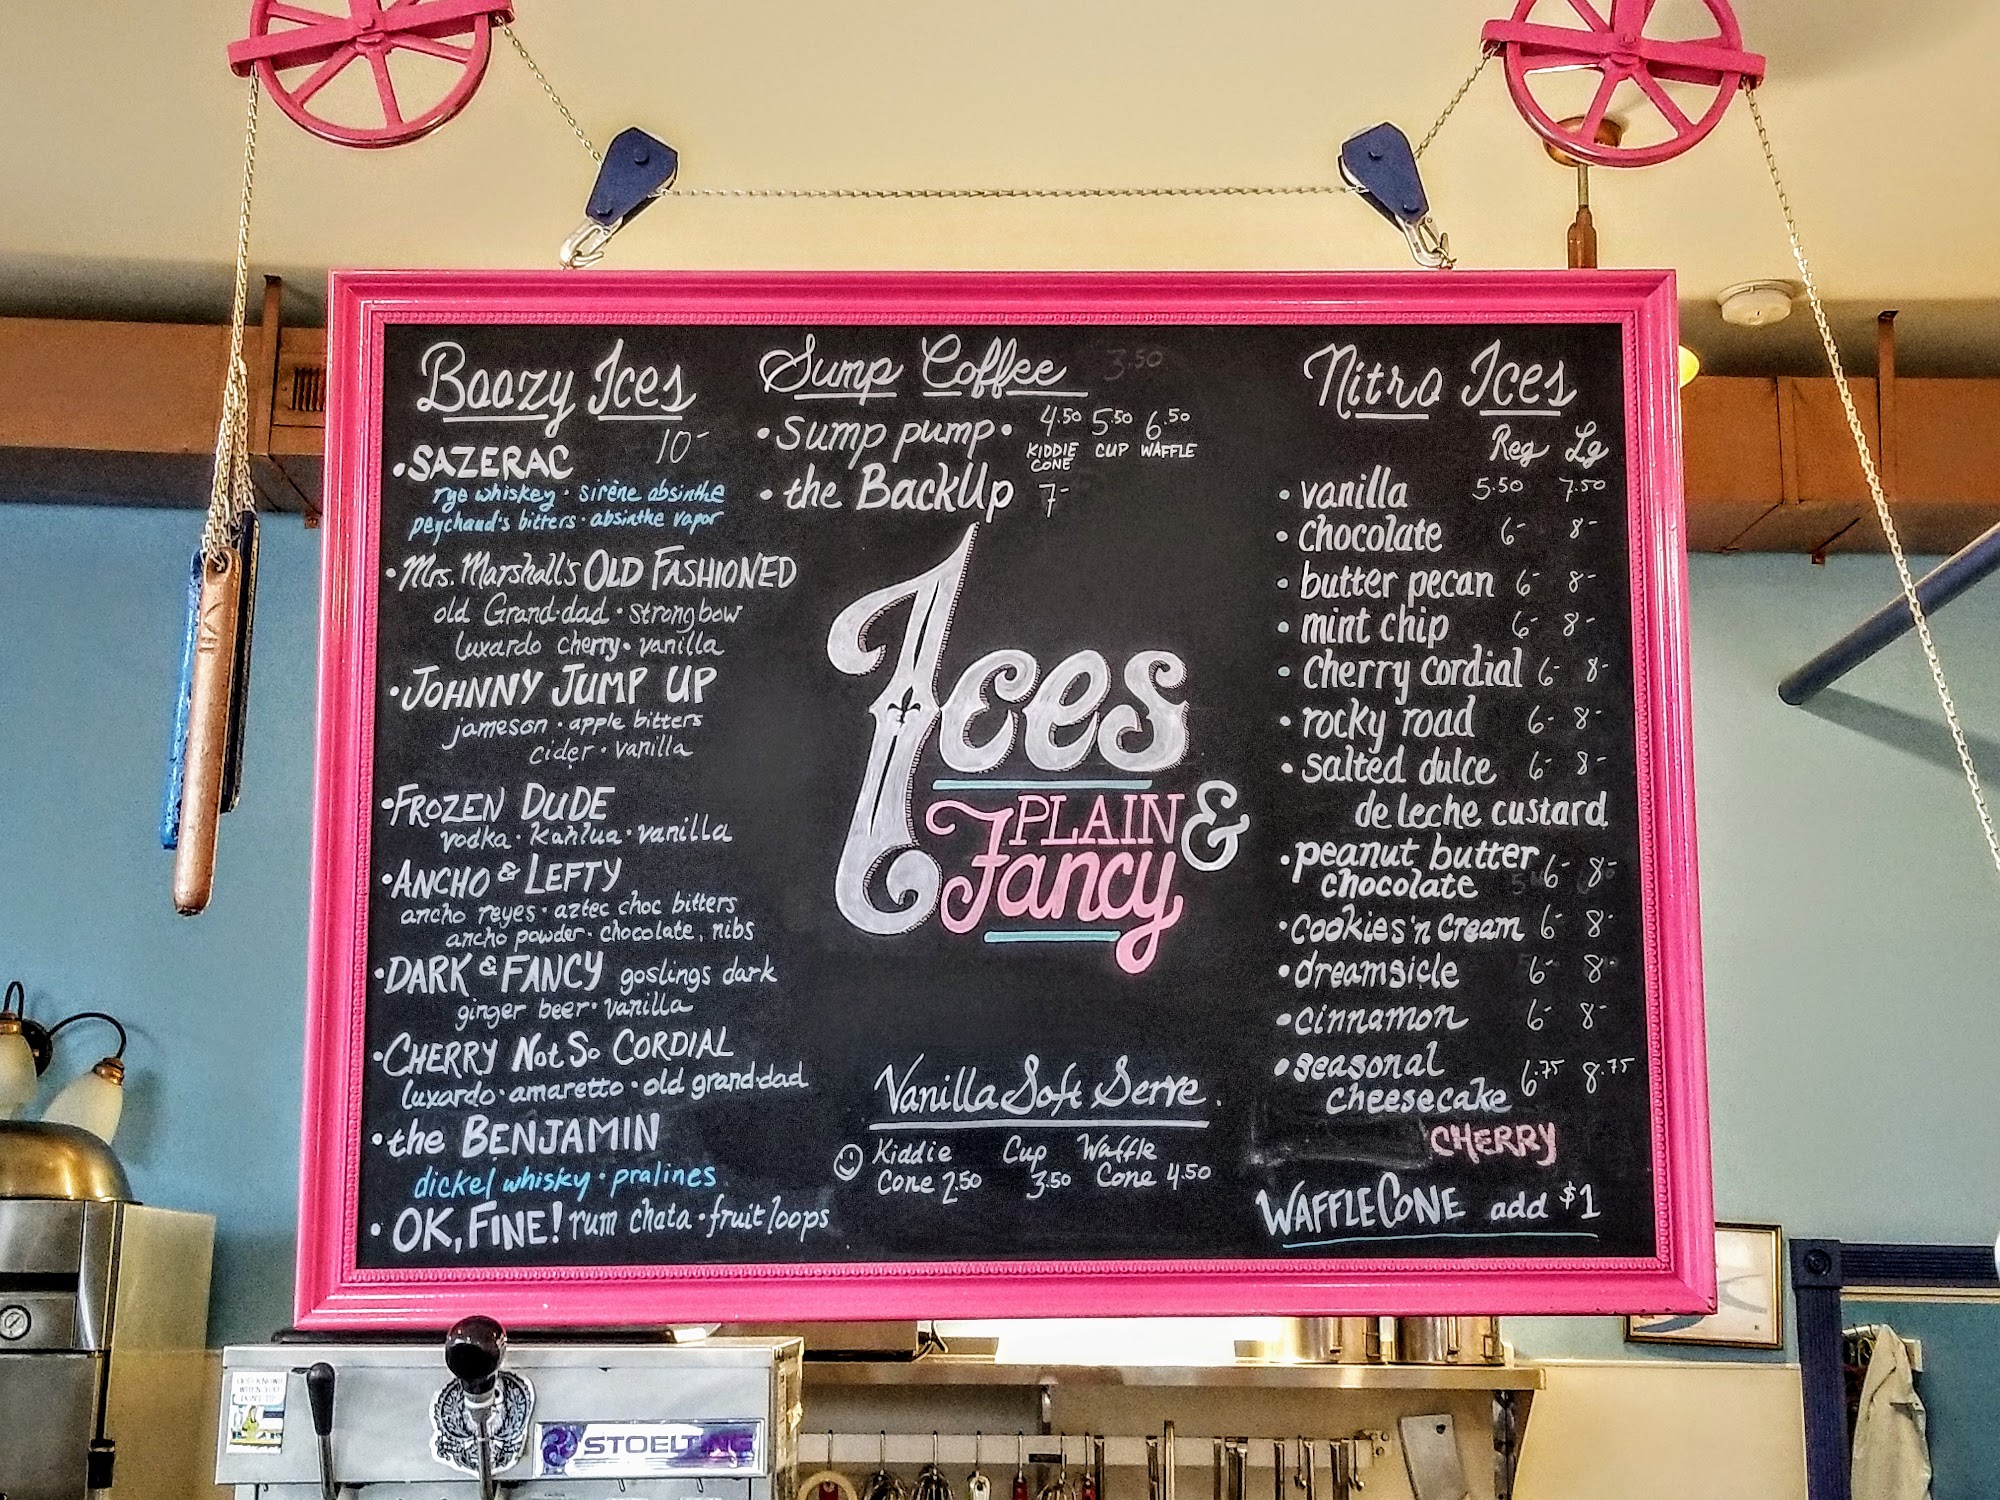 Boozy Ices
SAZERAC 10-
rye whiskey · sirène absinthe
peychaud's bitters · absinthe vapor
Mrs. Marshall's OLD FASHIONED
old Grand·dad · strongbow
luxardo cherry · vanilla
JOHNNY JUMP UP
jameson · apple bitters
cider · vanilla
FROZEN DUDE
vodka · kahlua · vanilla
ANCHO & LEFTY
ancho reyes · aztec choc bitters
ancho powder · chocolate, nibs
DARK & FANCY goslings dark
ginger beer · vanilla
CHERRY NOT SO CORDIAL
luxardo · amaretto · old grand·dad
the BENJAMIN
dickel whisky · pralines
OK, FINE! rum chata · fruit loops
Sump Coffee 3.50
· sump pump · 4.50 5.50 6.50
KIDDIE CONE CUP WAFFLE
· the BackUp 7-
Ices
PLAIN &
Fancy
Vanilla Soft Serve
Kiddie Cup Waffle
Cone 2.50 3.50 Cone 4.50
Nitro Ices
Reg Lg
· vanilla 5.50 7.50
· chocolate 6- 8-
· butter pecan 6- 8-
· mint chip 6- 8-
· cherry cordial 6- 8-
· rocky road 6- 8-
· salted dulce 6- 8-
de leche custard
· peanut butter 6- 8-
chocolate
· cookies 'n cream 6- 8-
· dreamsicle 6- 8-
· cinnamon 6- 8-
· seasonal 6.75 8.75
cheesecake
CHERRY
WAFFLE CONE add $1
STOELTING